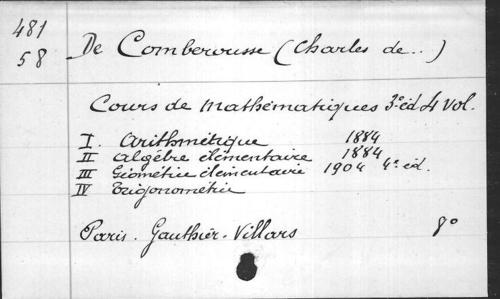 481
58
De Comberousse (Charles de..)
Cours de Mathématiques 3e éd 4 vol.
I. Arithmétique 1884
II Algèbre élémentaire 1884
III Géométrie élémentaire 1904 4e éd.
IV Trigonométrie
Paris. Gauthier-Villars 8o